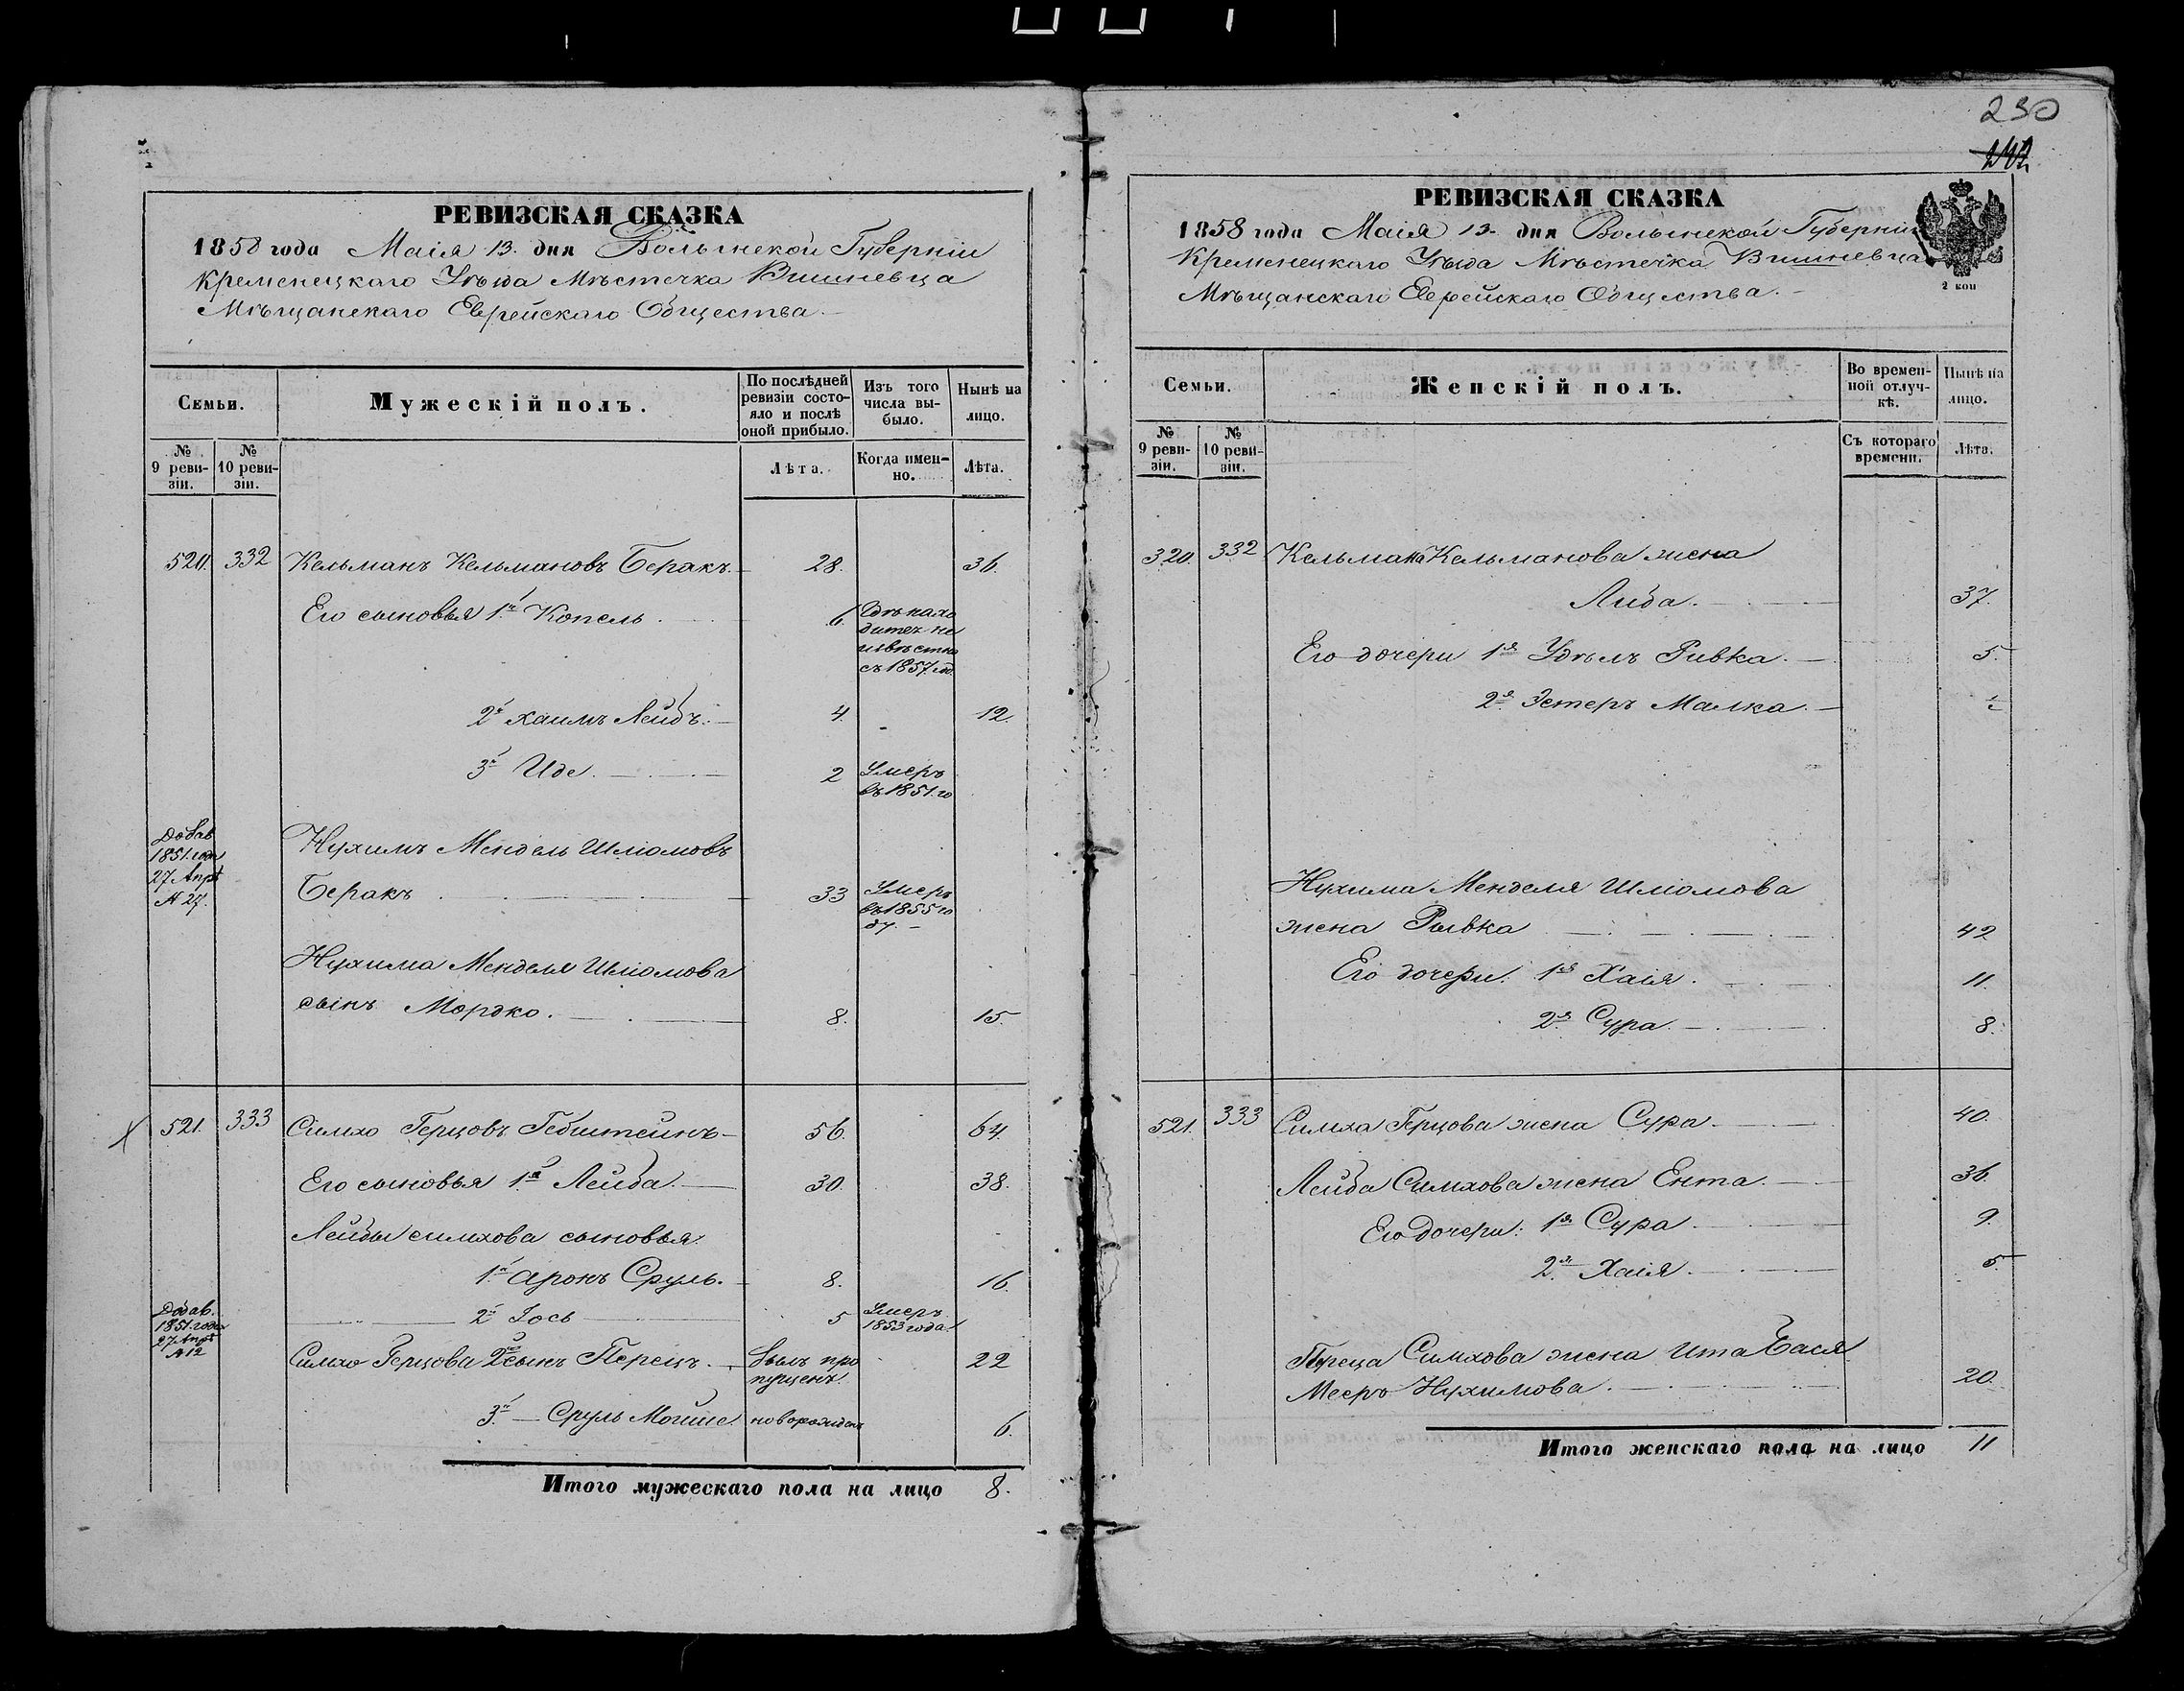 РЕВИЗСКАЯ СКАЗКА
1858 года Маія 13. дня Волынской Губерніи
Кременецкаго Уѣзда Мѣстечка Вишневца
Мѣщанскаго Еврейскаго Общества.
Семьи.
Мужескій полъ.
По послѣдней ревизіи состояло и послѣ оной прибыло.
Изъ того числа выбыло.
Нынѣ на лицо.
№ 9 ревизіи.
№ 10 ревизіи.
Лѣта.
Когда именно.
Лѣта.
520. 332 Кельманъ Кельмановъ Беракъ. 28. 36.
Его сыновья 1й Копель. 6. Гдѣ нахо
дитея не
извѣстно
съ 1857 го
2й Хаимъ Лейбъ. 4. 12.
3й Иде. 2 Умеръ
въ 1851. го
Добав.
1851. года
27 Апр
№ 27.
Нухимъ Мендель Шліомовъ
Беракъ 33 Умеръ
въ 1855 го
ду.
Нухима Менделя Шліомова
сынъ Мордко. 8. 15.
X 521. 333 Симхо Герцовъ Гебштейнъ 56. 64.
Его сыновья 1й Лейба. 30. 38.
Лейбы Симхова сыновья.
1й Аронъ Сруль. 8. 16.
2й Іось 5 Умеръ
1853 года.
Добав.
1851. года
27 Апр
№ 12
Симхо Герцова 2й сынъ Перецъ. былъ про
пущенъ. 22
3й Сруль Мошше новорожден 6.
Итого мужескаго пола на лицо 8.
230
РЕВИЗСКАЯ СКАЗКА
1858 года Маія 13. дня Волынской Губерніи
Кременецкаго Уѣзда Мѣстечка Вишневца
Мѣщанскаго Еврейскаго Общества.
2 коп
Семьи.
Женскій полъ.
Во временной отлучкѣ.
Нынѣ на лицо.
№ 9 ревизіи.
№ 10 ревизіи.
Съ котораго времени.
Лѣта.
320. 332 Кельмана Кельманова жена
Либа. 37.
Его дочери 1я Удѣль Ривка. 5.
2я Эстеръ Малка. ½
Нухима Менделя Шліомова
жена Рывка 42
Его дочери: 1я Хаія. 11.
2я Сура. 8.
521. 333 Симха Герцова жена Сура. 40.
Лейба Симхова жена Ента. 36.
Его дочери: 1я Сура. 9.
2я Хаія. 5.
Переца Симхова жена Ита Бася
Мееръ Нухимова. 20.
Итого женскаго пола на лицо 11